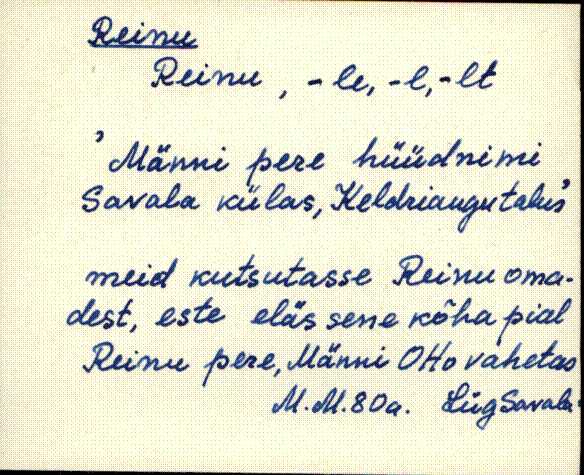 Reinu
Reinu, -le, -l, -lt
'Männi pere hüüdnimi
Savala külas, Keldriaugu talus'
meid kutsutasse Reinu oma-
dest, este eläs sene kõha pial
Reinu pere, Männi Otto vahetas
M.M. 80a. LügSavala